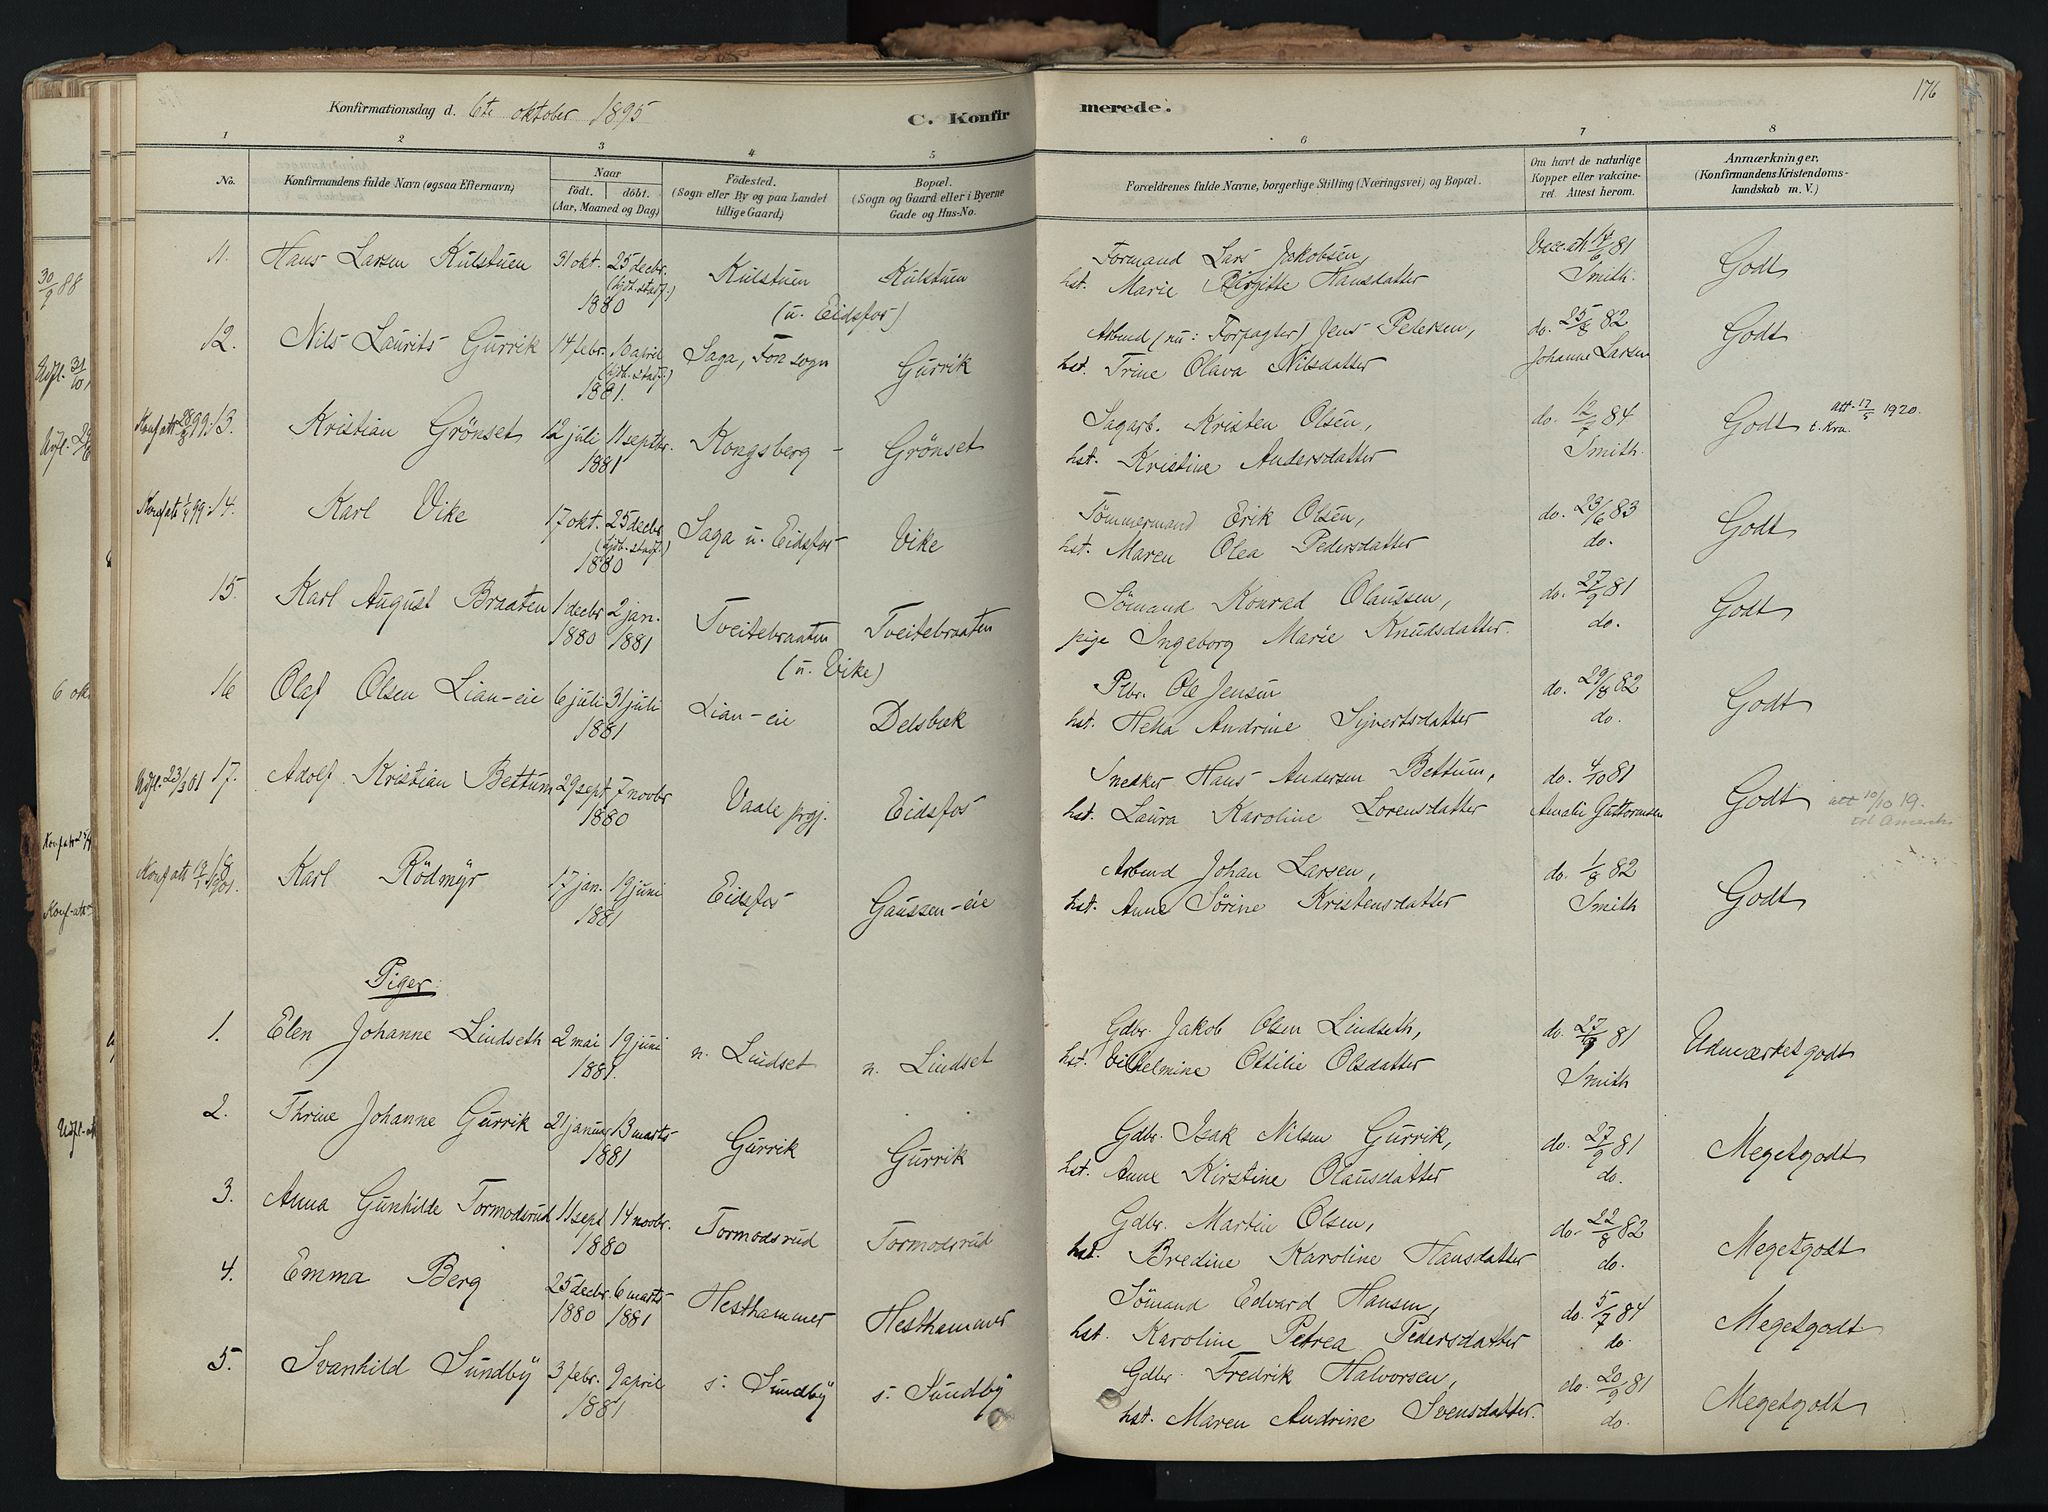 176
Konfirmationsdag d. 6te oktober 1895
C. Konfirmerede.
1 2 3 4 5 6 7 8
No.
Konfirmandens fulde Navn (ogsaa Efternavn)
Naar
födt. döbt.
(Aar, Maaned og Dag)
Födested.
(Sogn eller By og paa Landet
tillige Gaard)
Bopæl.
(Sogn og Gaard eller i Byerne
Gade og Hus-No.
Forældrenes fulde Navne, borgerlige Stilling (Næringsvei) og Bopæl.
Om havt de naturlige
Kopper eller vakcine-
ret. Attest herom.
Anmærkninger.
(Konfirmandens Kristendoms-
kundskab m. V.)
11. Hans Larsen Kulstuen 31 okt. 25 decbr. (hjdb. stadf.) 1880 Kulstuen (u. Eidsfos) Kulstuen
Formand Lars Jakobsen,
hst. Marie Birgitte Hansdatter
Vacc. att. 14/6 81 Smith. Godt
12. Nils Laurits Gurrik 14 febr. 18 april (hjdb. stadf.) 1881. Saga, Fon sogn Gurrik
Arbmd (nu: Forpagter) Jens Pedersen,
hst. Trine Olava Nilsdatter
do. 25/8 82 Johanne Larsen Godt
Konf. att. 28/8 99: 13. Kristian Grönset 12 juli 11 septbr. 1881 Kongsberg - Grönset
Sagarb. Kristen Olsen,
hst. Kristine Andersdatter
do. 12/7 84 Smith. Godt att. 17/5 1920. t. Kra.
Konf. att. 1/4 99: 14. Karl Vike 17 okt. 25 decbr (hjdb. stadf.) 1880 Saga u. Eidsfos Vike
Tömmermand Erik Olsen,
hst. Maren Olea Pedersdatter
do. 23/6 83 do. Godt
15. Karl August Braaten 1 decbr 1880 2 jan. 1881 Tveitebraaten (u. Vike) Tveitebraaten
Sömand Konrad Olaussen,
pige Ingeborg Marie Knudsdatter.
do. 27/9 81 do. Godt
16 Olaf Olsen Lian-eie 6 juli 31 juli 1881 Lian-eie Delsbæk
Plbr. Ole Jensen
hst. Helia Andrine Sjvertsdatter
do. 29/8 82 do. Godt
Udfl. 23/3 01 17. Adolf Kristian Bettum 29 sept 7 novbr 1880 Vaale prgj. Eidsfos
Snedker Hans Andersen Bettum,
hst. Laura Karoline Lorensdatter
do. 4/10 81 Amalie Guttormsen Godt att 10/10 19. til Amerika
18 Karl Rödmyr 17 jan. 19 juni 1881 Eidsfos Gaussen-eie
Arbmd Johan Larsen,
hst. Anne Sörine Kristensdatter
do. 1/8 82 Smith Godt
Piger.
1. Elen Johanne Lindseth 2 mai 19 juni 1881. n. Lindset n. Lindset
Gdbr. Jakob Olsen Lindseth,
hst. Vilhelmine Ottilie Olsdatter
do. 27/9 81 Smith Udmærket godt
2. Thrine Johanne Gurrik 21 januar 13 marts 1881 Gurrik Gurrik
Gdbr. Isak Nilsen Gurrik,
hst. Anne Kirstine Olausdatter
do. 27/9 81 do. Megetgodt
3. Anna Gunhilde Tormodsrud 11 sept 14 novbr. 1880 Tormodsrud Tormodsrud
Gdbr. Martin Olsen,
hst. Bredine Karoline Hansdatter
do. 22/8 82 do. Megetgodt
4. Emma Berg 25 decbr. 1880 6 marts 1881 Hesthammer Hesthammer
Sömand Edvard Hansen,
hst. Karoline Petrea Pedersdatter
do. 5/7 84 do Megetgodt
5. Svanhild Sundby 3 febr. 9 april 1881 s. Sundby s. Sundby
Gdbr. Fredrik Halvorsen,
hst. Maren Andrine Svensdatter.
do. 20/9 81 do. Megetgodt
30/9 88
6 okt